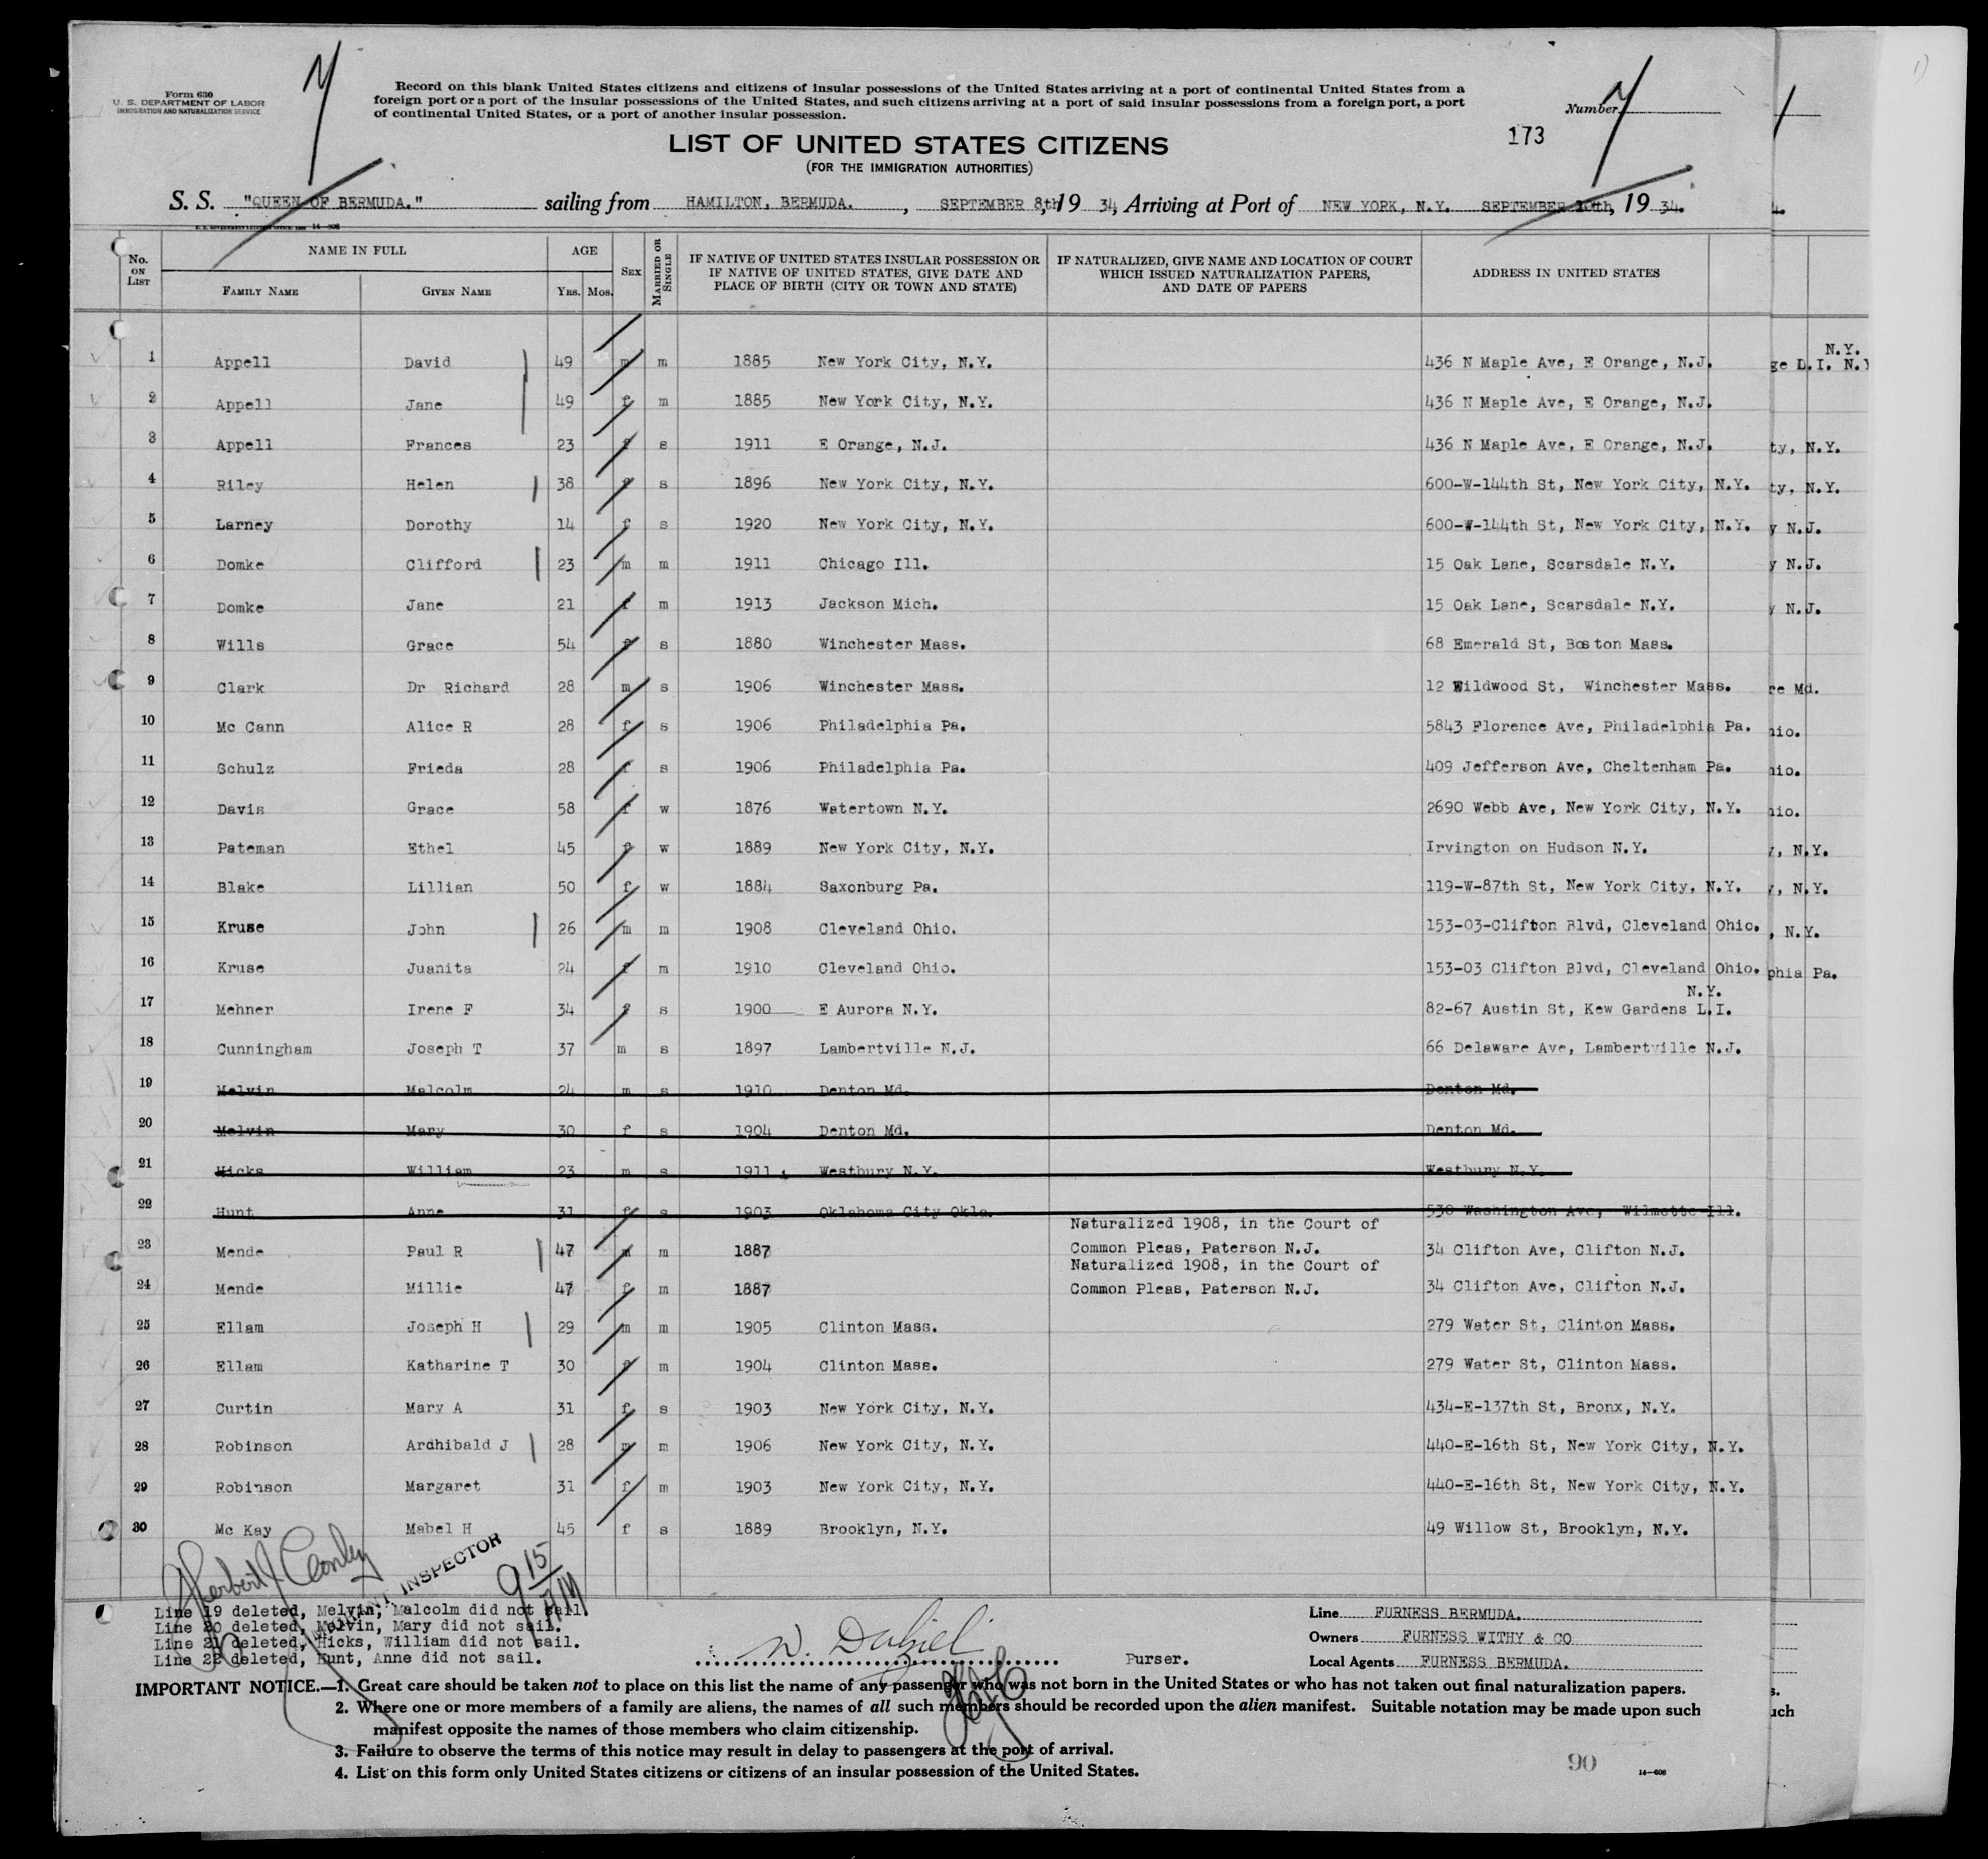 Form 630
U. S. DEPARTMENT OF LABOR
IMMIGRATION AND NATURALIZATION SERVICE
Record on this blank United States citizens and citizens of insular possessions of the United States arriving at a port of continental United States from a
foreign port or a port of the insular possessions of the United States, and such citizens arriving at a port of said insular possessions from a foreign port, a port
of continental United States, or a port of another insular possession.
Number
173
LIST OF UNITED STATES CITIZENS
(FOR THE IMMIGRATION AUTHORITIES)
S. S. "QUEEN OF BERMUDA." sailing from HAMILTON, BERMUDA. , SEPTEMBER 8th, 19 34, Arriving at Port of NEW YORK, N.Y. SEPTEMBER 10th, 19 34.
No. ON LIST NAME IN FULL AGE SEX MARRIED OR SINGLE IF NATIVE OF UNITED STATES INSULAR POSSESSION OR IF NATIVE OF UNITED STATES, GIVE DATE AND PLACE OF BIRTH (CITY OR TOWN AND STATE) IF NATURALIZED, GIVE NAME AND LOCATION OF COURT WHICH ISSUED NATURALIZATION PAPERS, AND DATE OF PAPERS ADDRESS IN UNITED STATES
FAMILY NAME GIVEN NAME YRS. MOS.
1 Appell David 49 m m 1885 New York City, N.Y. 436 N Maple Ave, E Orange, N.J.
2 Appell Jane 49 f m 1885 New York City, N.Y. 436 N Maple Ave, E Orange, N.J.
3 Appell Frances 23 f s 1911 E Orange, N.J. 436 N Maple Ave, E Orange, N.J.
4 Riley Helen 38 f s 1896 New York City, N.Y. 600-W-144th St, New York City, N.Y.
5 Larney Dorothy 14 f s 1920 New York City, N.Y. 600-W-144th St, New York City, N.Y.
6 Domke Clifford 23 m m 1911 Chicago Ill. 15 Oak Lane, Scarsdale N.Y.
7 Domke Jane 21 f m 1913 Jackson Mich. 15 Oak Lane, Scarsdale N.Y.
8 Wills Grace 54 f s 1880 Winchester Mass. 68 Emerald St, Boston Mass.
9 Clark Dr Richard 28 m s 1906 Winchester Mass. 12 Wildwood St, Winchester Mass.
10 Mc Cann Alice R 28 f s 1906 Philadelphia Pa. 5843 Florence Ave, Philadelphia Pa.
11 Schulz Frieda 28 f s 1906 Philadelphia Pa. 409 Jefferson Ave, Cheltenham Pa.
12 Davis Grace 58 f w 1876 Watertown N.Y. 2690 Webb Ave, New York City, N.Y.
13 Pateman Ethel 45 f w 1889 New York City, N.Y. Irvington on Hudson N.Y.
14 Blake Lillian 50 f w 1884 Saxonburg Pa. 119-W-87th St, New York City, N.Y.
15 Kruse John 26 m m 1908 Cleveland Ohio. 153-03-Clifton Blvd, Cleveland Ohio.
16 Kruse Juanita 24 f m 1910 Cleveland Ohio. 153-03 Clifton Blvd, Cleveland Ohio.
N.Y.
17 Mehner Irene F 34 f s 1900 E Aurora N.Y. 82-67 Austin St, Kew Gardens L.I.
18 Cunningham Joseph T 37 m s 1897 Lambertville N.J. 66 Delaware Ave, Lambertville N.J.
19 Melvin Malcolm 24 m s 1910 Denton Md. Denton Md.
20 Melvin Mary 30 f s 1904 Denton Md. Denton Md.
21 Hicks William 23 m s 1911 Westbury N.Y. Westbury N.Y.
22 Hunt Anne 31 f s 1903 Oklahoma City Okla. 530 Washington Ave, Wilmette Ill.
Naturalized 1908, in the Court of
23 Mende Paul R 47 m m 1887 Common Pleas, Paterson N.J. 34 Clifton Ave, Clifton N.J.
Naturalized 1908, in the Court of
24 Mende Millie 47 f m 1887 Common Pleas, Paterson N.J. 34 Clifton Ave, Clifton N.J.
25 Ellam Joseph H 29 m m 1905 Clinton Mass. 279 Water St, Clinton Mass.
26 Ellam Katharine T 30 f m 1904 Clinton Mass. 279 Water St, Clinton Mass.
27 Curtin Mary A 31 f s 1903 New York City, N.Y. 434-E-137th St, Bronx, N.Y.
28 Robinson Ardhibald J 28 m m 1906 New York City, N.Y. 440-E-16th St, New York City, N.Y.
29 Robinson Margaret 31 f m 1903 New York City, N.Y. 440-E-16th St, New York City, N.Y.
30 Mc Kay Mabel H 45 f s 1889 Brooklyn, N.Y. 49 Willow St, Brooklyn, N.Y.
INSPECTOR
9 15 AM
Line 19 deleted, Melvin, Malcolm did not sail.
Line 20 deleted, Melvin, Mary did not sail.
Line 21 deleted, Hicks, William did not sail.
Line 22 deleted, Hunt, Anne did not sail.
Purser.
Line FURNESS BERMUDA.
Owners FURNESS WITHY & CO
Local Agents FURNESS BERMUDA.
IMPORTANT NOTICE.—1. Great care should be taken not to place on this list the name of any passenger who was not born in the United States or who has not taken out final naturalization papers.
2. Where one or more members of a family are aliens, the names of all such members should be recorded upon the alien manifest. Suitable notation may be made upon such
manifest opposite the names of those members who claim citizenship.
3. Failure to observe the terms of this notice may result in delay to passengers at the port of arrival.
4. List on this form only United States citizens or citizens of an insular possession of the United States.
90
14-606